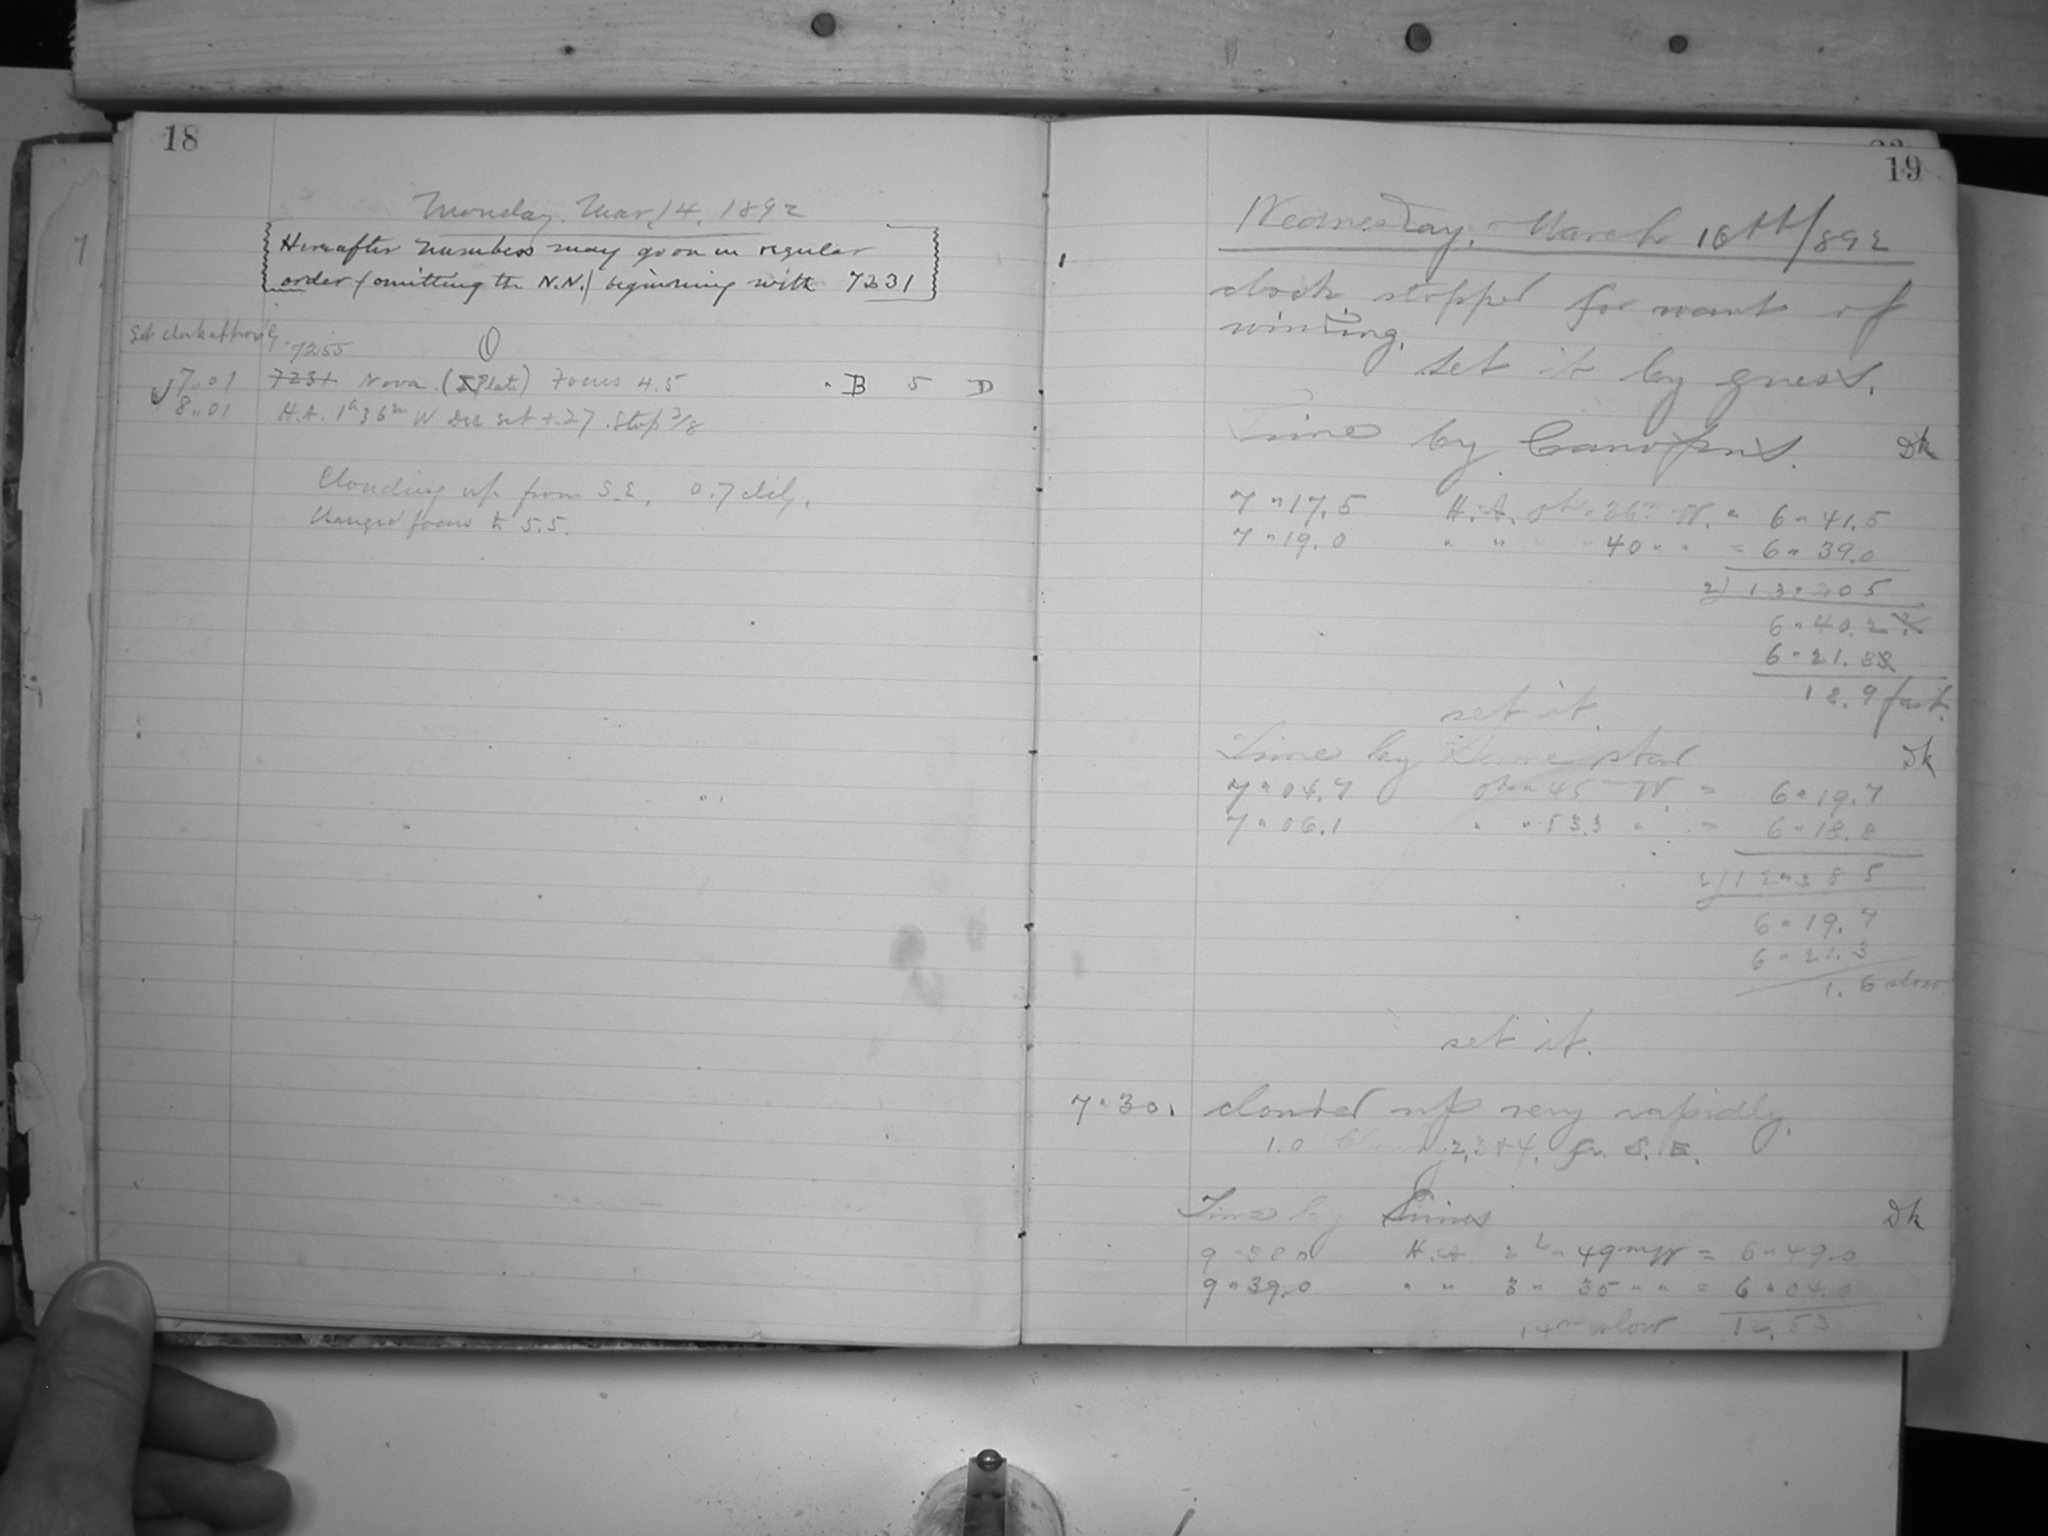 18
Monday. Mar. 14. 1892
Hereafter numbers may go on in regular
order (omitting the N.N.) beginning with 7231
Set clock approx'ly. 7255
7"01 7231 Nova. (Plate) Focus 4.5 B 5 D
8"01 H.A. 1h36m W Dec set +.27. Stop 3/8
Clouding up from S.E. 0.7 cldy.
Changed focus to 5.5.
7
19
Wednesday. March 16th/892
clock stopped for want of
winding.
set it by guess.
Time by Canopus. Dk
7"17.5 H.A. 0h"36m W. = 6"41.5
7"19.0 " " 40 " " = 6"39.0
2) 13" 05
6"40.2
6"21.3
18.9 fast.
set it.
Time by same star Dk
7"04.7 0h"45m W. = 6"19.7
7"06.1 " " 53.3 " = 6"18.8
2) 12"385
6"19.7
6"21.3
1.6 slow.
set it.
7"30. clouded up very rapidly.
1.0 2,3+4, fr. S.E.
Time by Sirius Dk
9"38.0 H.A. 2h"49m W = 6"49.0
9"39.0 " " 3" 35" " = 6"04.0
14m slow 12.53